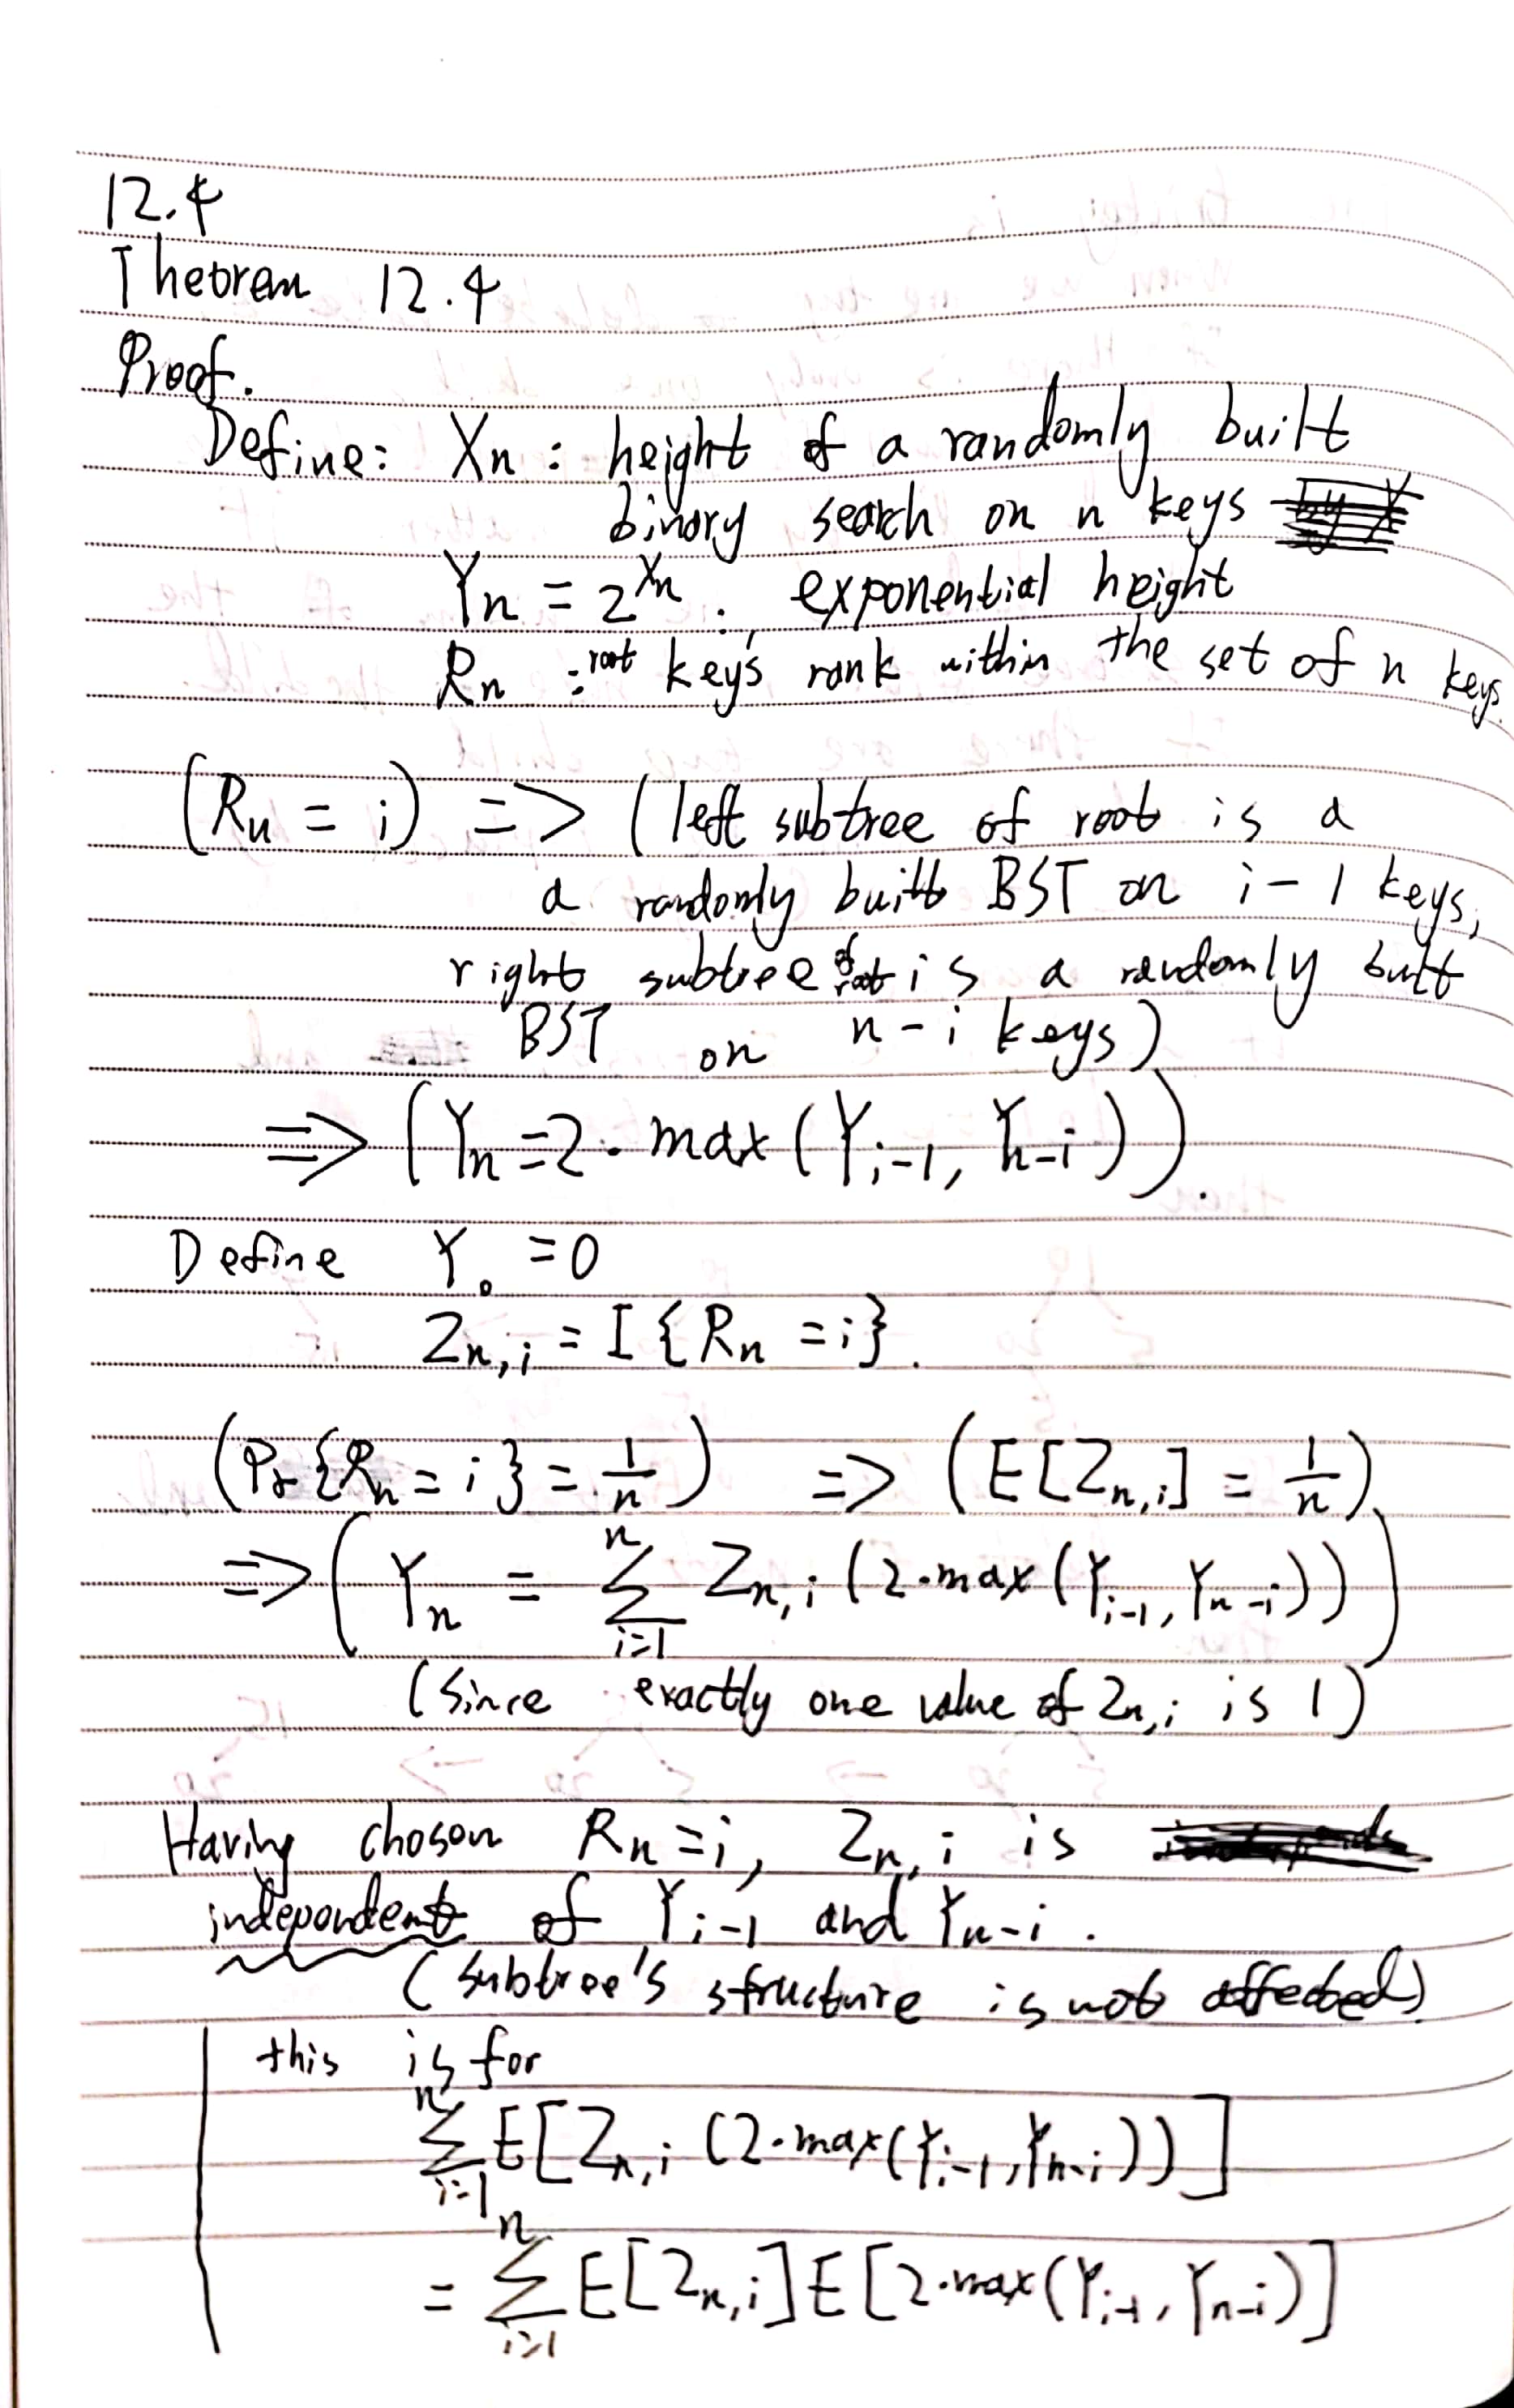 12.4
Theorem 12.4
Proof.
Define: Xn : height of a randomly built
binary search on n keys
Yn = 2^Xn : exponential height
Rn : root key's rank within the set of n keys.
(Rn = i) => (left subtree of root is a
a randomly built BST on i-1 keys,
right subtree of root is a randomly built
BST on n-i keys)
=> (Yn = 2·max(Yi-1, Yn-i)).
Define Y0 = 0
Zn,i = I{Rn = i}.
(Pr{Rn = i} = 1/n) => (E[Zn,i] = 1/n)
=> (Yn = Σ_{i=1}^{n} Zn,i (2·max(Yi-1, Yn-i)))
(Since exactly one value of Zn,i is 1)
Having chosen Rn = i, Zn,i is
independent of Yi-1 and Yn-i.
(subtree's structure is not affected)
this is for
Σ_{i=1}^{n} E[Zn,i (2·max(Yi-1, Yn-i))]
= Σ_{i=1}^{n} E[Zn,i]E[2·max(Yi-1, Yn-i)]